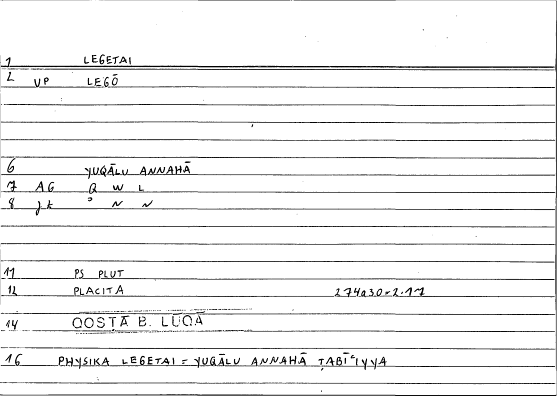 1 LEGETAI
2 VP LEGŌ
6 YUQĀLU ANNAHĀ
7 AG Q W L
8 jk ʾ N N
11 PS PLUT
12 PLACITA 274a30-2.11
14 QOSṬĀ B. LŪQĀ
16 PHYSIKA LEGETAI = YUQĀLU ANNAHĀ ṬABĪʿIYYA